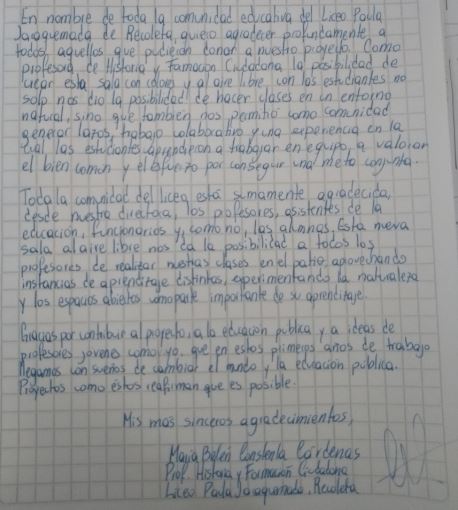 En nombre de toda la comunidad educativa del Liceo Paula
Jaraquemada de Recoleta, quiero agradecer profundamente a
todos aquellos que pudieron donar a nuestro proyecto. Como
profesora de Historia y Formación Ciudadana, la posibilidad de
crear esta sala con colores y al aire libre con los estudiantes no
solo nos dio la posibilidad de hacer clases en un entorno
natural, sino que también nos permitió como comunidad
generar lazos, trabajo colaborativo y una experiencia en la
cual las estudiantes aprendieron a trabajar en equipo, a valorar
el bien común y el esfuerzo por conseguir una meta conjunta.
Toda la comunidad del liceo está sumamente agradecida,
desde nuestra directora, los profesores, asistentes de la
educación, funcionarios y, como no, las alumnas. Esta nueva
sala al aire libre nos da la posibilidad a todos los
profesores de realizar nuestras clases en el patio, aprovechando
instancias de aprendizaje distintas, experimentando la naturaleza
y los espacios abiertos como parte importante de su aprendizaje.
Gracias por contribuir al proyecto, a la educación pública y a ideas de
profesores jóvenes como yo, que en estos primeros años de trabajo
llegamos con sueños de cambiar el mundo y la educación pública.
Proyectos como estos reafirman que es posible.
Mis más sinceros agradecimientos,
María Belén Constenla Cárdenas
Prof. Historia y Formación Ciudadana
Liceo Paula Jaraquemada, Recoleta